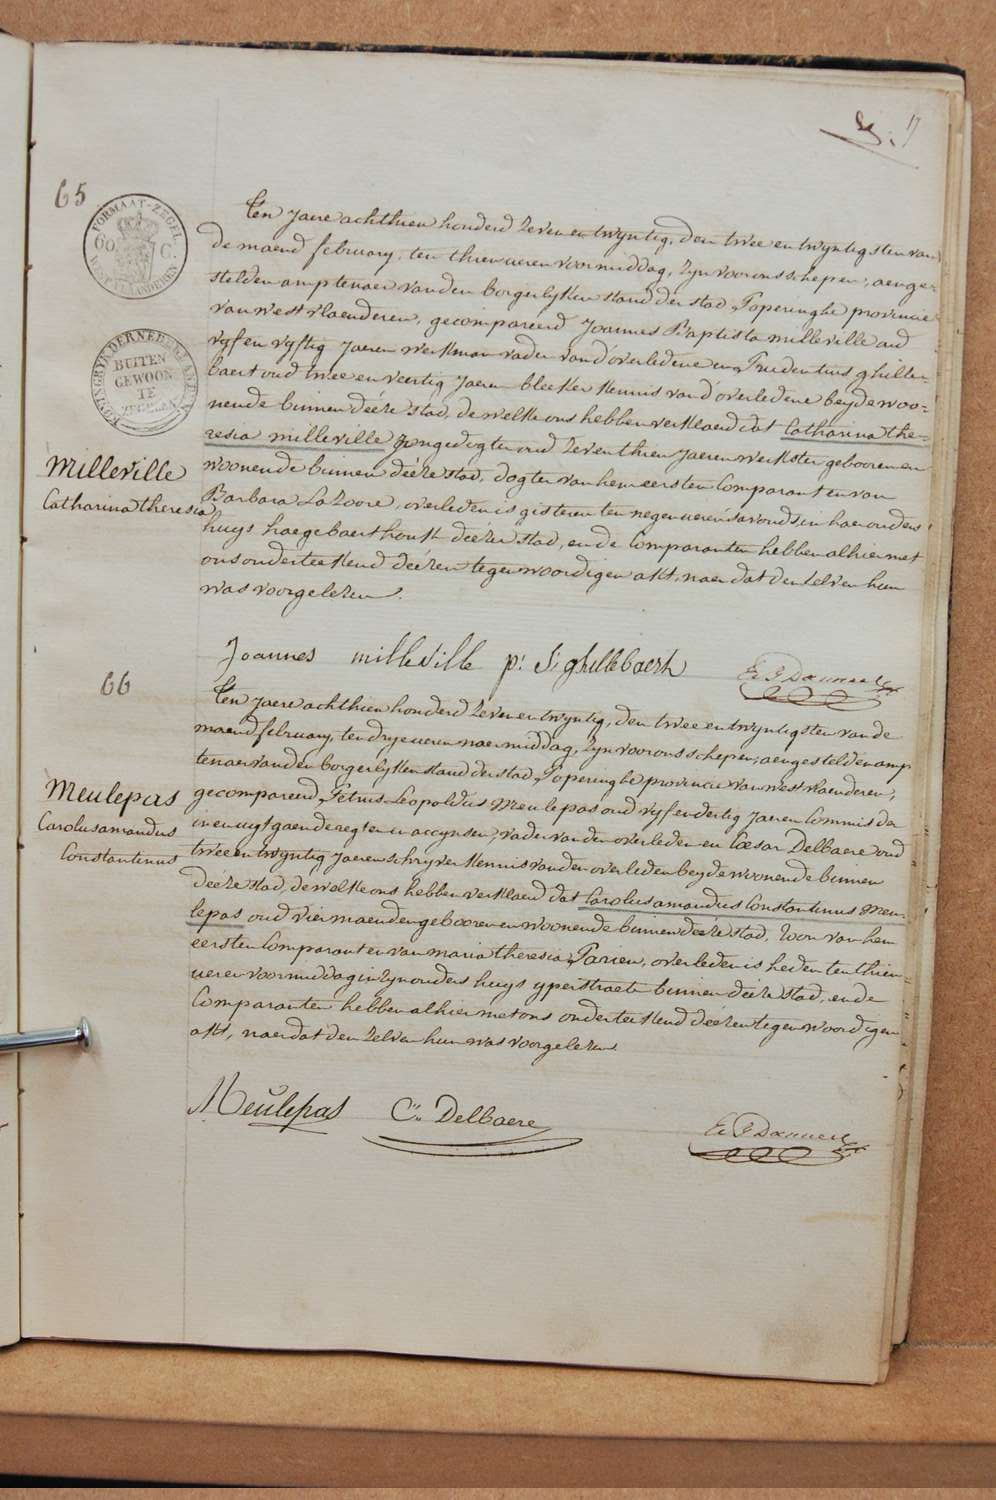 17
65
FORMAAT-ZEGEL
60 C.
WEST VLAANDEREN
KONINGRYK DER NEDERLANDEN
BUITEN
GEWOON
TE
Milleville
Catharina Theresia
Ten jaere achthien honderd zeven en twyntig, den twee en twyntigsten van
de maend february, ten thien ueren voormiddag, zyn voor ons schepen, aenge-
stelden amptenaer van den borgerlyken stand der stad Poperinghe provincie
van westvlaenderen, gecompareerd Joannes Baptista milleville oud
vyf en vyftig jaeren werkman vader van d'overledene en Prudentius ghille-
baert oud twee en veertig jaeren bleeker kennis van d'overledene beyde woo-
nende binnen deéze stad, de welke ons hebben verklaerd dat Catharina the-
resia milleville jongedogter oud zeventhien jaeren werkster gebooren en
woonende binnen deéze stad, dogter van hem eersten Comparant en van
Barbara Lazoore, overleden is gisteren ten negen ueren s'avonds in haer ouders
huys haegebaerthoek deéze stad, en de Comparanten hebben alhier met
ons onderteekend deézen tegenwoordigen akt, naer dat den zelven hun
was voorgelezen.
Joannes milleville p: S; ghillebaert
66
Meulepas
Carolus amandus
Constantinus
Ten jaere achthien honderd zeven en twyntig, den twee en twyntigsten van de
maend february, ten drye ueren naermiddag, zyn voor ons schepen, aengestelden amp
tenaer van den borgerlyken stand der stad Poperinghe provincie van westvlaenderen,
gecompareerd Petrus Leopoldus Meulepas oud vyf en dertig jaeren Commis der
in en uytgaende regten en accynsen, vader van den overleden en Cæsar Delbaere oud
twee en twyntig jaeren schryver kennis van den overleden beyde woonende binnen
deéze stad, de welke ons hebben verklaerd dat Carolus amandus Constantinus Meu-
lepas oud vier maenden gebooren en woonende binnen deéze stad, zoon van hem
eersten Comparant en van maria theresia Parien, overleden is heden ten thien
ueren voormiddag in zyn ouders huys yperstraete binnen deéze stad, en de
Comparanten hebben alhier met ons onderteekend deézen tegenwoordigen
akt, naer dat den zelven hun was voorgelezen
Meulepas C. Delbaere